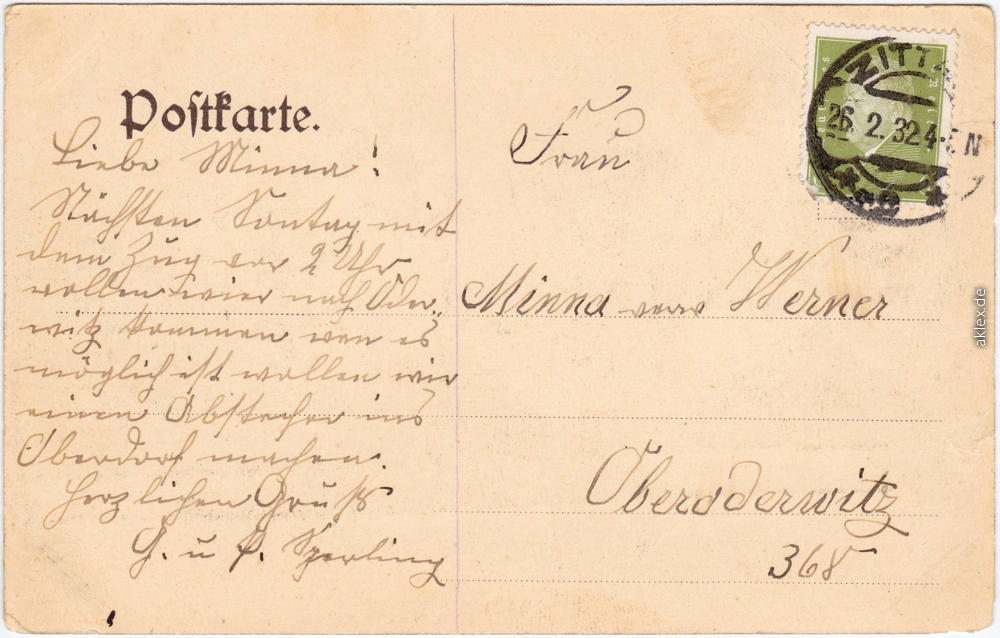 Postkarte.
Liebe Minna!
Nächsten Sontag mit
dem Zug vor 2 Uhr
wollen wier nach Oder-
witz kommen wen es
möglich ist wollen wir
einen Abstecher ins
Oberdorf machen.
Herzlichen Gruß
G. u. P. Sperling
Frau
Minna verw Werner
Oberoderwitz
368
ZITT
26. 2. 32 4-5 N
aklex.de